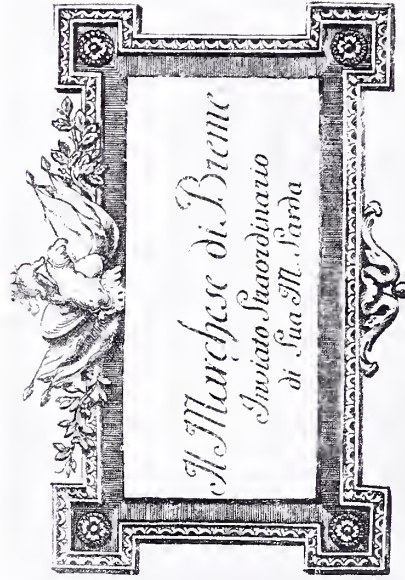 Il Marchese di Breme
Inviato Straordinario
di Sua M. Sarda